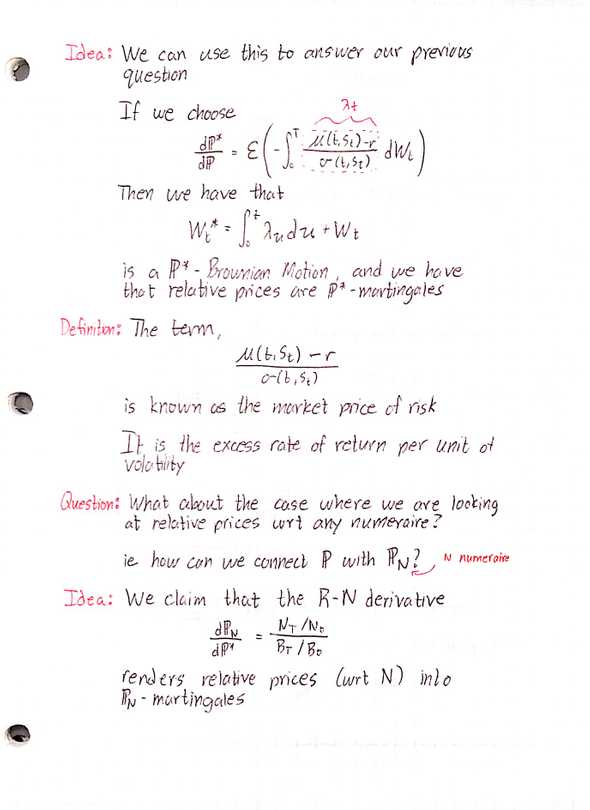 Idea: We can use this to answer our previous
question
If we choose
λt
dℙ*/dℙ = ℰ(-∫₀ᵀ (μ(t,St)-r)/(σ(t,St)) dWt)
Then we have that
Wt* = ∫₀ᵗ λu du + Wt
is a ℙ*-Brownian Motion, and we have
that relative prices are ℙ*-martingales
Definition: The term,
(μ(t,St) - r)/(σ(t,St))
is known as the market price of risk
It is the excess rate of return per unit of
volatility
Question: What about the case where we are looking
at relative prices wrt any numeraire?
ie how can we connect ℙ with ℙN? N numeraire
Idea: We claim that the R-N derivative
dℙN/dℙ* = (NT/N0)/(BT/B0)
renders relative prices (wrt N) into
ℙN-martingales